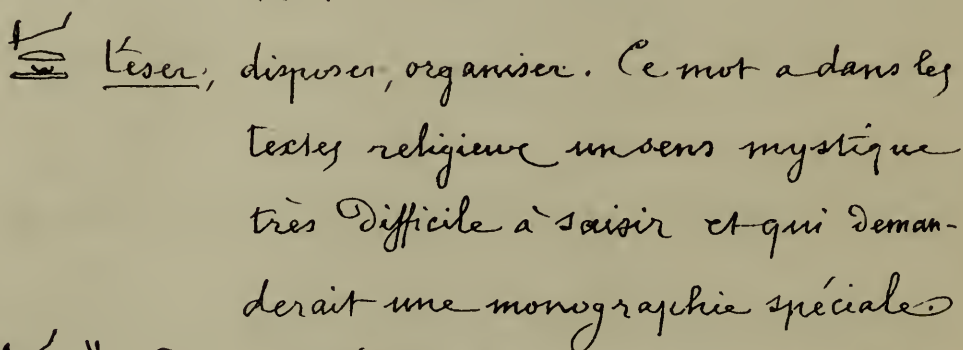 T'eser, disposer, organiser. Ce mot a dans les
textes religieux un sens mystique
très difficile à saisir et qui deman-
derait une monographie spéciale.